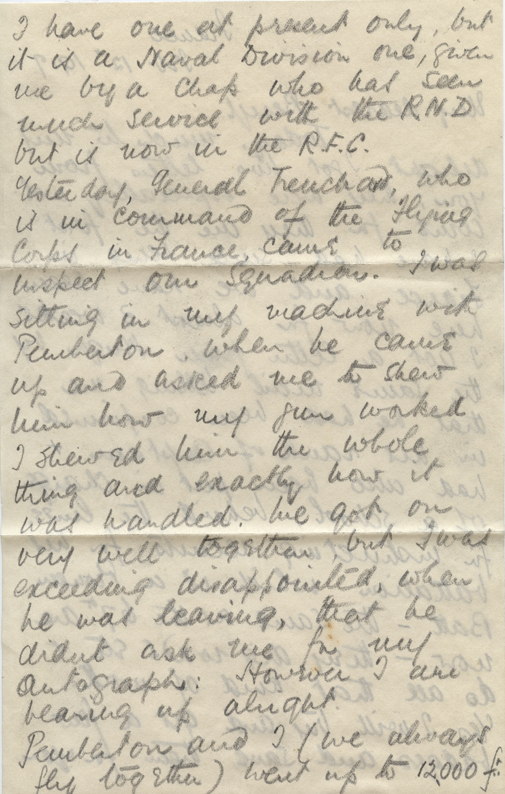 I have one at present only, but
it is a Naval Division one, given
me by a chap who has seen
much service with the R.N.D
but is now in the R.F.C.
Yesterday, General Trenchard, who
is in command of the Flying
Corps in France, came to
inspect our Squadron. I was
sitting in my machine with
Pemberton, when he came
up and asked me to shew
him how my gun worked
I shewed him the whole
thing and exactly how it
was handled. We got on
very well together but I was
exceeding disappointed, when
he was leaving, that he
didnt ask me for my
autograph: However I am
bearing up alright.
Pemberton and I (we always
fly together) went up to 12,000 ft.